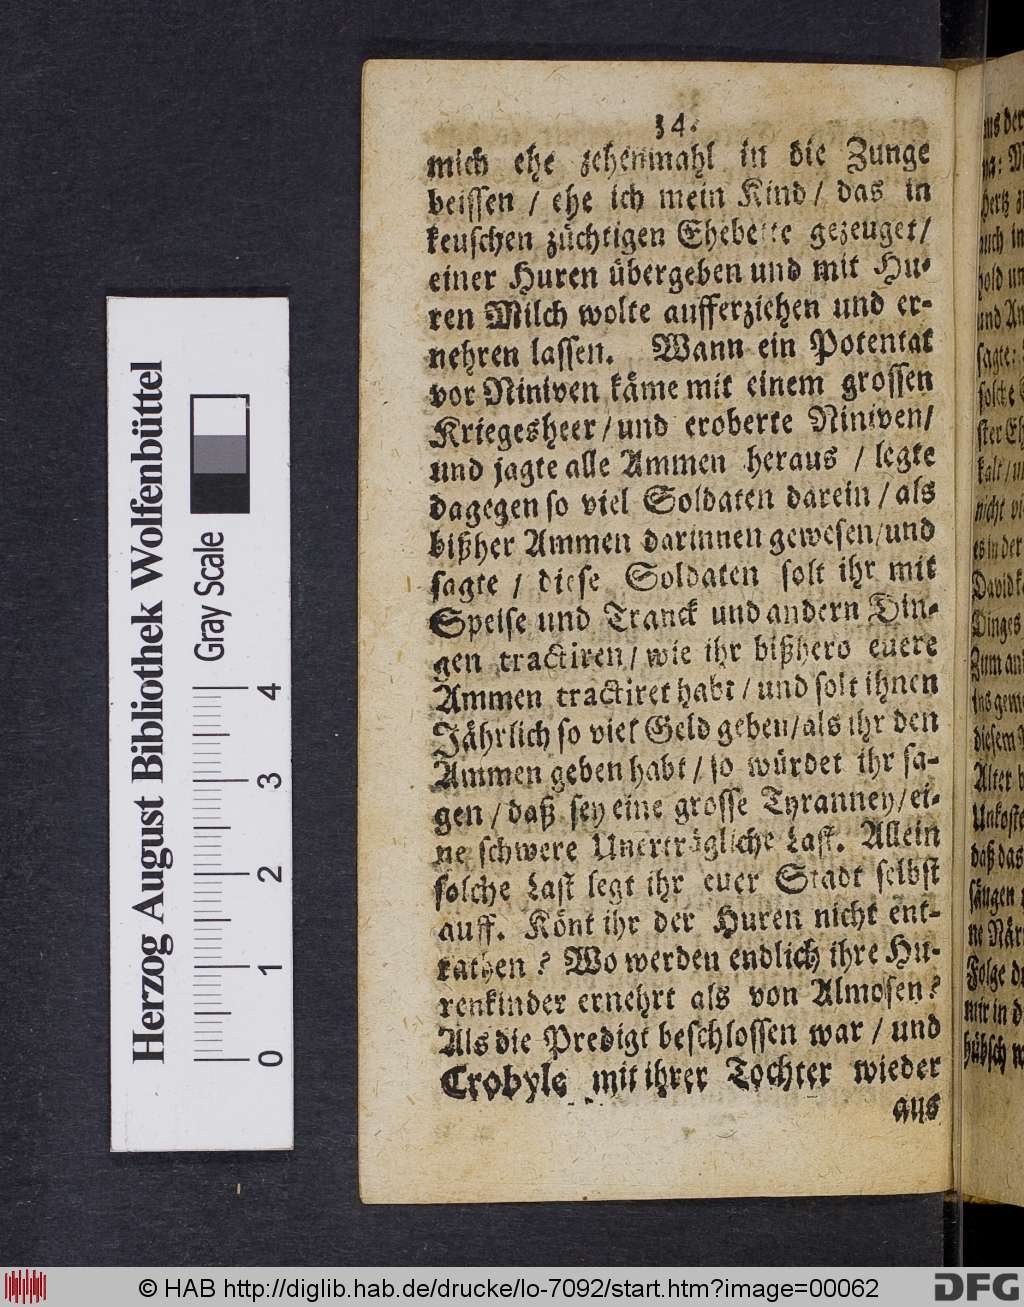 54.
mich ehe zehenmahl in die Zunge
beissen / ehe ich mein Kind / das in
keuschen züchtigen Ehebette gezeuget /
einer Huren übergeben und mit Hu-
ren Milch wolte aufferziehen und er-
nehren lassen. Wann ein Potentat
vor Niniven käme mit einem grossen
Kriegesheer / und eroberte Niniven /
und jagte alle Ammen heraus / legte
dagegen so viel Soldaten darein / als
bißher Ammen darinnen gewesen / und
sagte / diese Soldaten solt ihr mit
Speise und Tranck und andern Din-
gen tractiren / wie ihr bißhero euere
Ammen tractiret habt / und solt ihnen
Jährlich so viel Geld geben / als ihr den
Ammen geben habt / so würdet ihr sa-
gen / daß sey eine grosse Tyranney / ei-
ne schwere Unerträgliche Last. Allein
solche Last legt ihr euer Stadt selbst
auff. Könt ihr der Huren nicht ent-
rathen ? Wo werden endlich ihre Hu-
renkinder ernehrt als von Almosen ?
Als die Predigt beschlossen war / und
Crobyle mit ihrer Tochter wieder
aus
Herzog August Bibliothek Wolfenbüttel
Gray Scale
0 1 2 3 4
© HAB http://diglib.hab.de/drucke/lo-7092/start.htm?image=00062
DFG